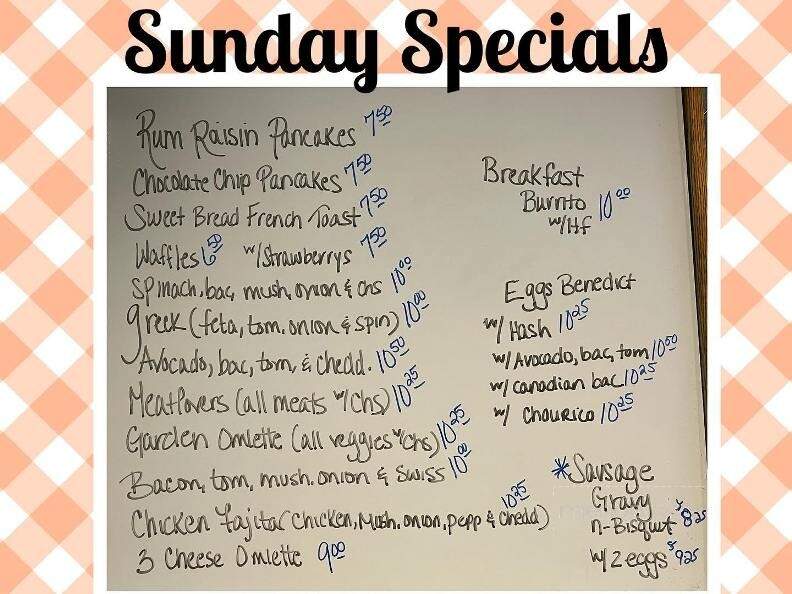 Sunday Specials
Rum Raisin Pancakes 7.50
Chocolate Chip Pancakes 7.50
Sweet Bread French Toast 7.50
Waffles 6.50 w/Strawberrys 7.50
Spinach, bac, mush, onion & chs 10.00
Greek (feta, tom. onion & spin) 10.00
Avocado, bac, tom, & chedd. 10.50
Meatlovers (all meats w/chs) 10.25
Garden Omlette (all veggies w/chs) 10.25
Bacon, tom, mush. onion & Swiss 10.00
Chicken Fajita (chicken, Mush. onion, pepp & chedd) 10.25
3 Cheese Omlette 9.00
Breakfast
Burrito 10.00
w/Hf
Eggs Benedict
w/ Hash 10.25
w/ Avocado, bac, tom 10.50
w/ canadian bac 10.25
w/ Chourico 10.25
*Sausage
Gravy
n-Bisquit $8.25
w/ 2 eggs $9.25